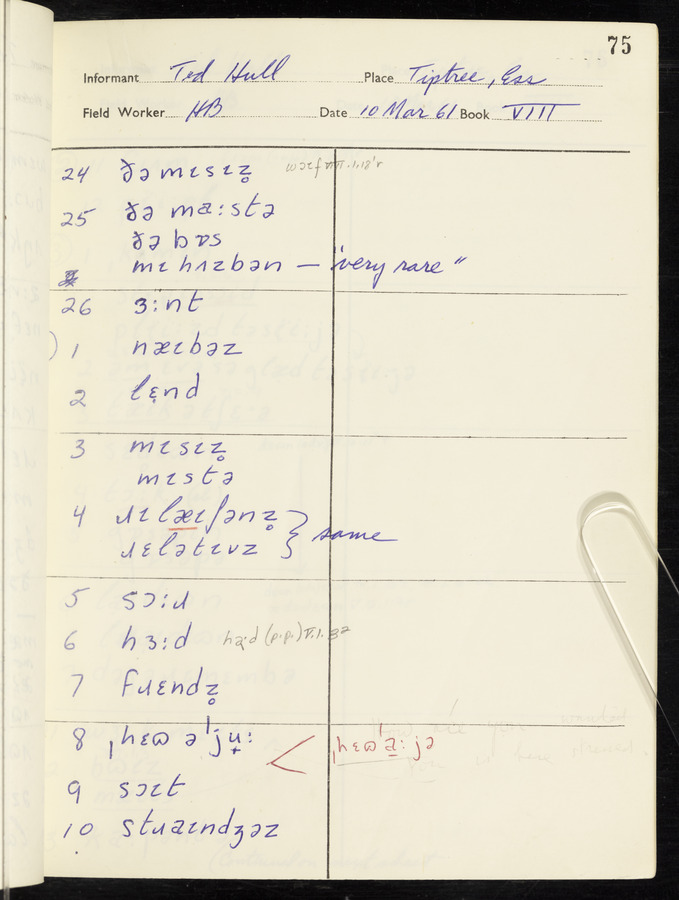 75
Informant Ted Hull Place Tiptree, Ess
Field Worker HB Date 10 Mar 61 Book VIII
24 ðə mɪsɪz̥
25 ðə ma:stə
ðə bɒs
mɪ hʌzbən — "very rare"
26 ɜ:nt
1 næɪbəz
2 lɛ̣nd
3 mɪsɪz̥
mɪstə
4 ɹɪlæɪʃənz̥ } same
ɹɛlətɪvz
5 sɔ:ɹ
6 hɜ:d hə:d (p.p.) VI.1.32
7 fɹɛndz̥
8 ˌhɛɷ ə ˈjʉ: < ˌhɛɷˈa̱: jə
9 sɔɪt
10 stɹaɪndʒəz